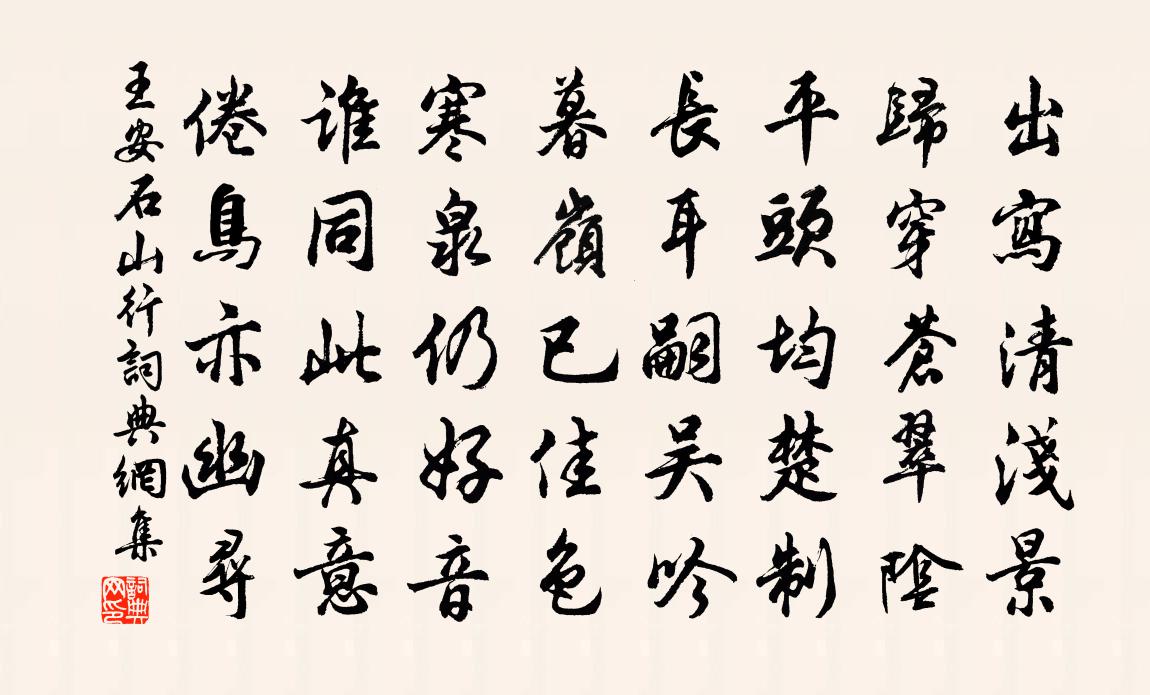 出寫清淺景
歸穿蒼翠陰
平頭均楚制
長耳嗣吴吟
暮嶺已佳色
寒泉仍好音
誰同此真意
倦鳥亦幽尋
王安石山行詞典網集
詞典網印